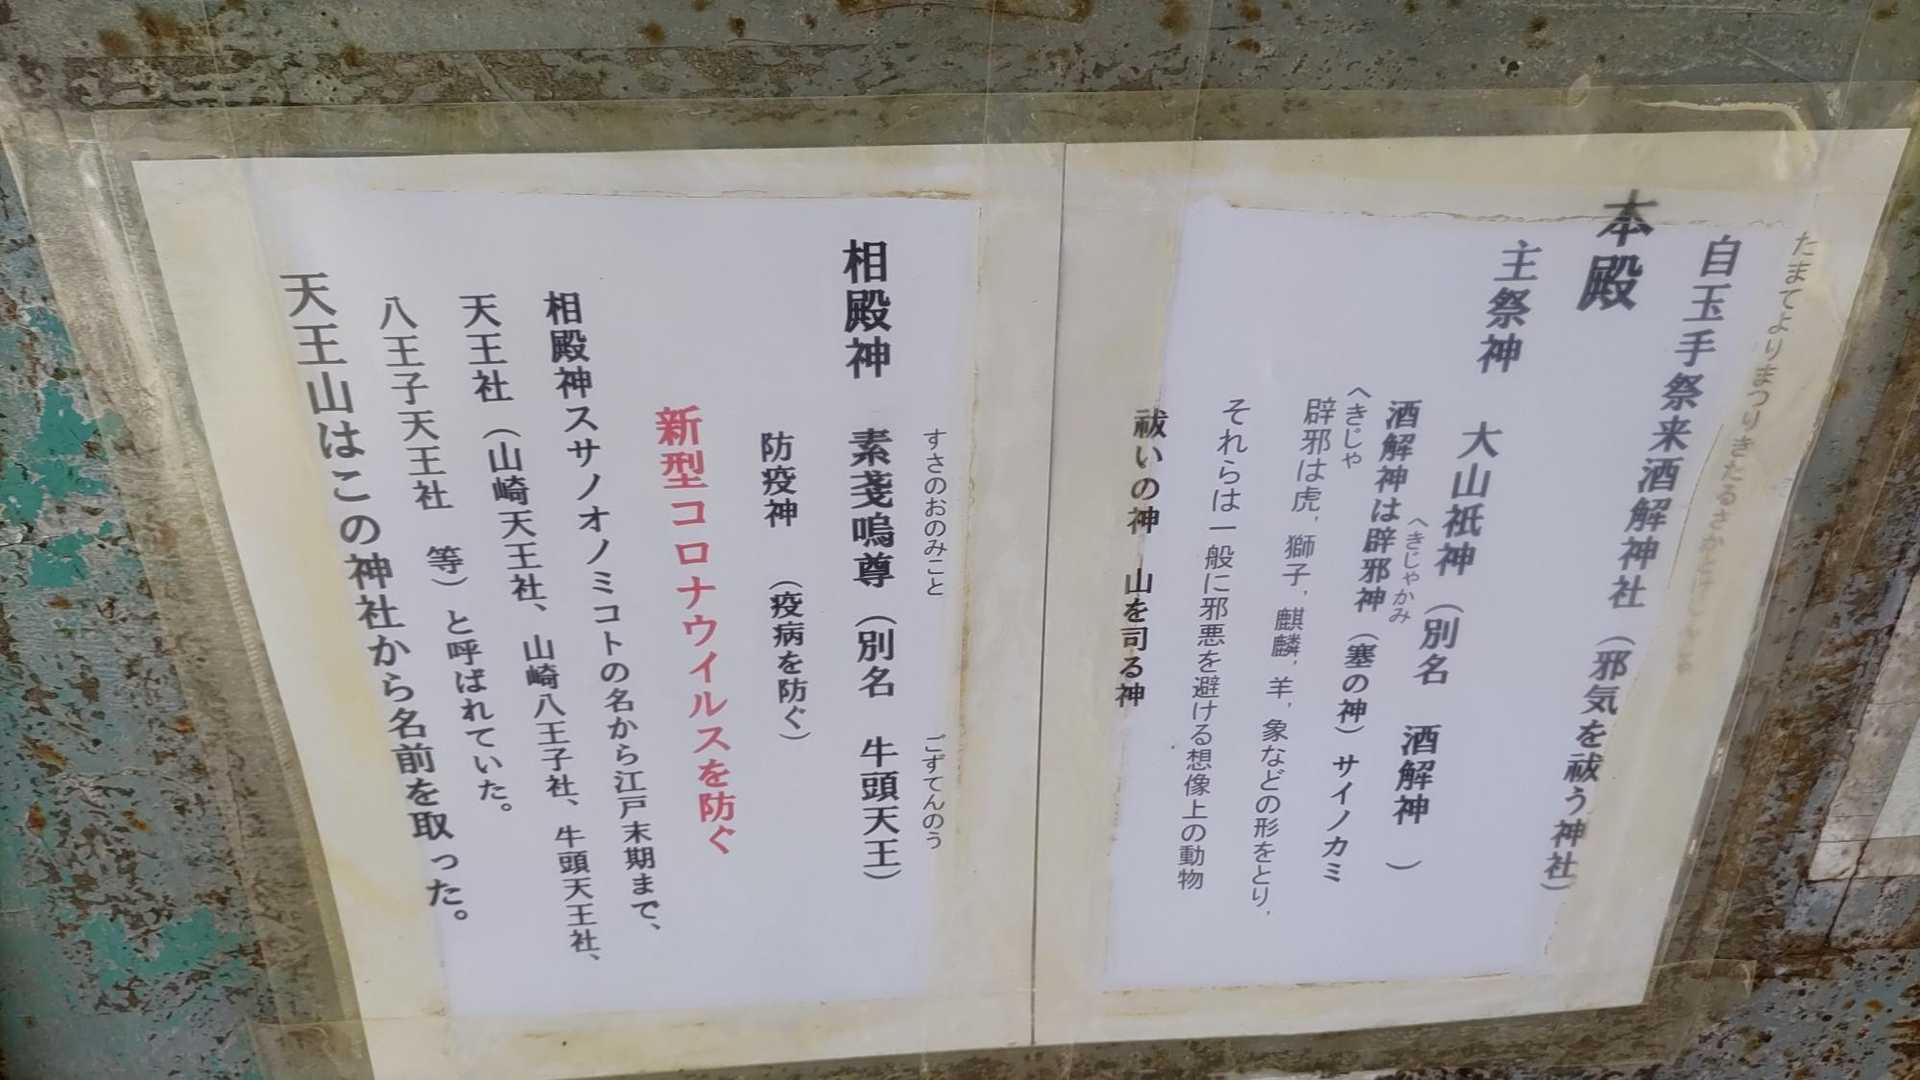 たまてよりまつりきたるさかとけ
自玉手祭来酒解神社（邪気を祓う神社）
本殿
主祭神　大山祇神（別名　酒解神　）
へきじゃかみ
酒解神は辟邪神（塞の神）サイノカミ
へきじゃ
辟邪は虎，獅子，麒麟，羊，象などの形をとり，
それらは一般に邪悪を避ける想像上の動物
祓いの神　山を司る神
すさのおのみこと　ごずてんのう
相殿神　素戔嗚尊（別名　牛頭天王）
防疫神　（疫病を防ぐ）
新型コロナウイルスを防ぐ
相殿神スサノオノミコトの名から江戸末期まで、
天王社（山崎天王社、山崎八王子社、牛頭天王社、
八王子天王社　等）と呼ばれていた。
天王山はこの神社から名前を取った。